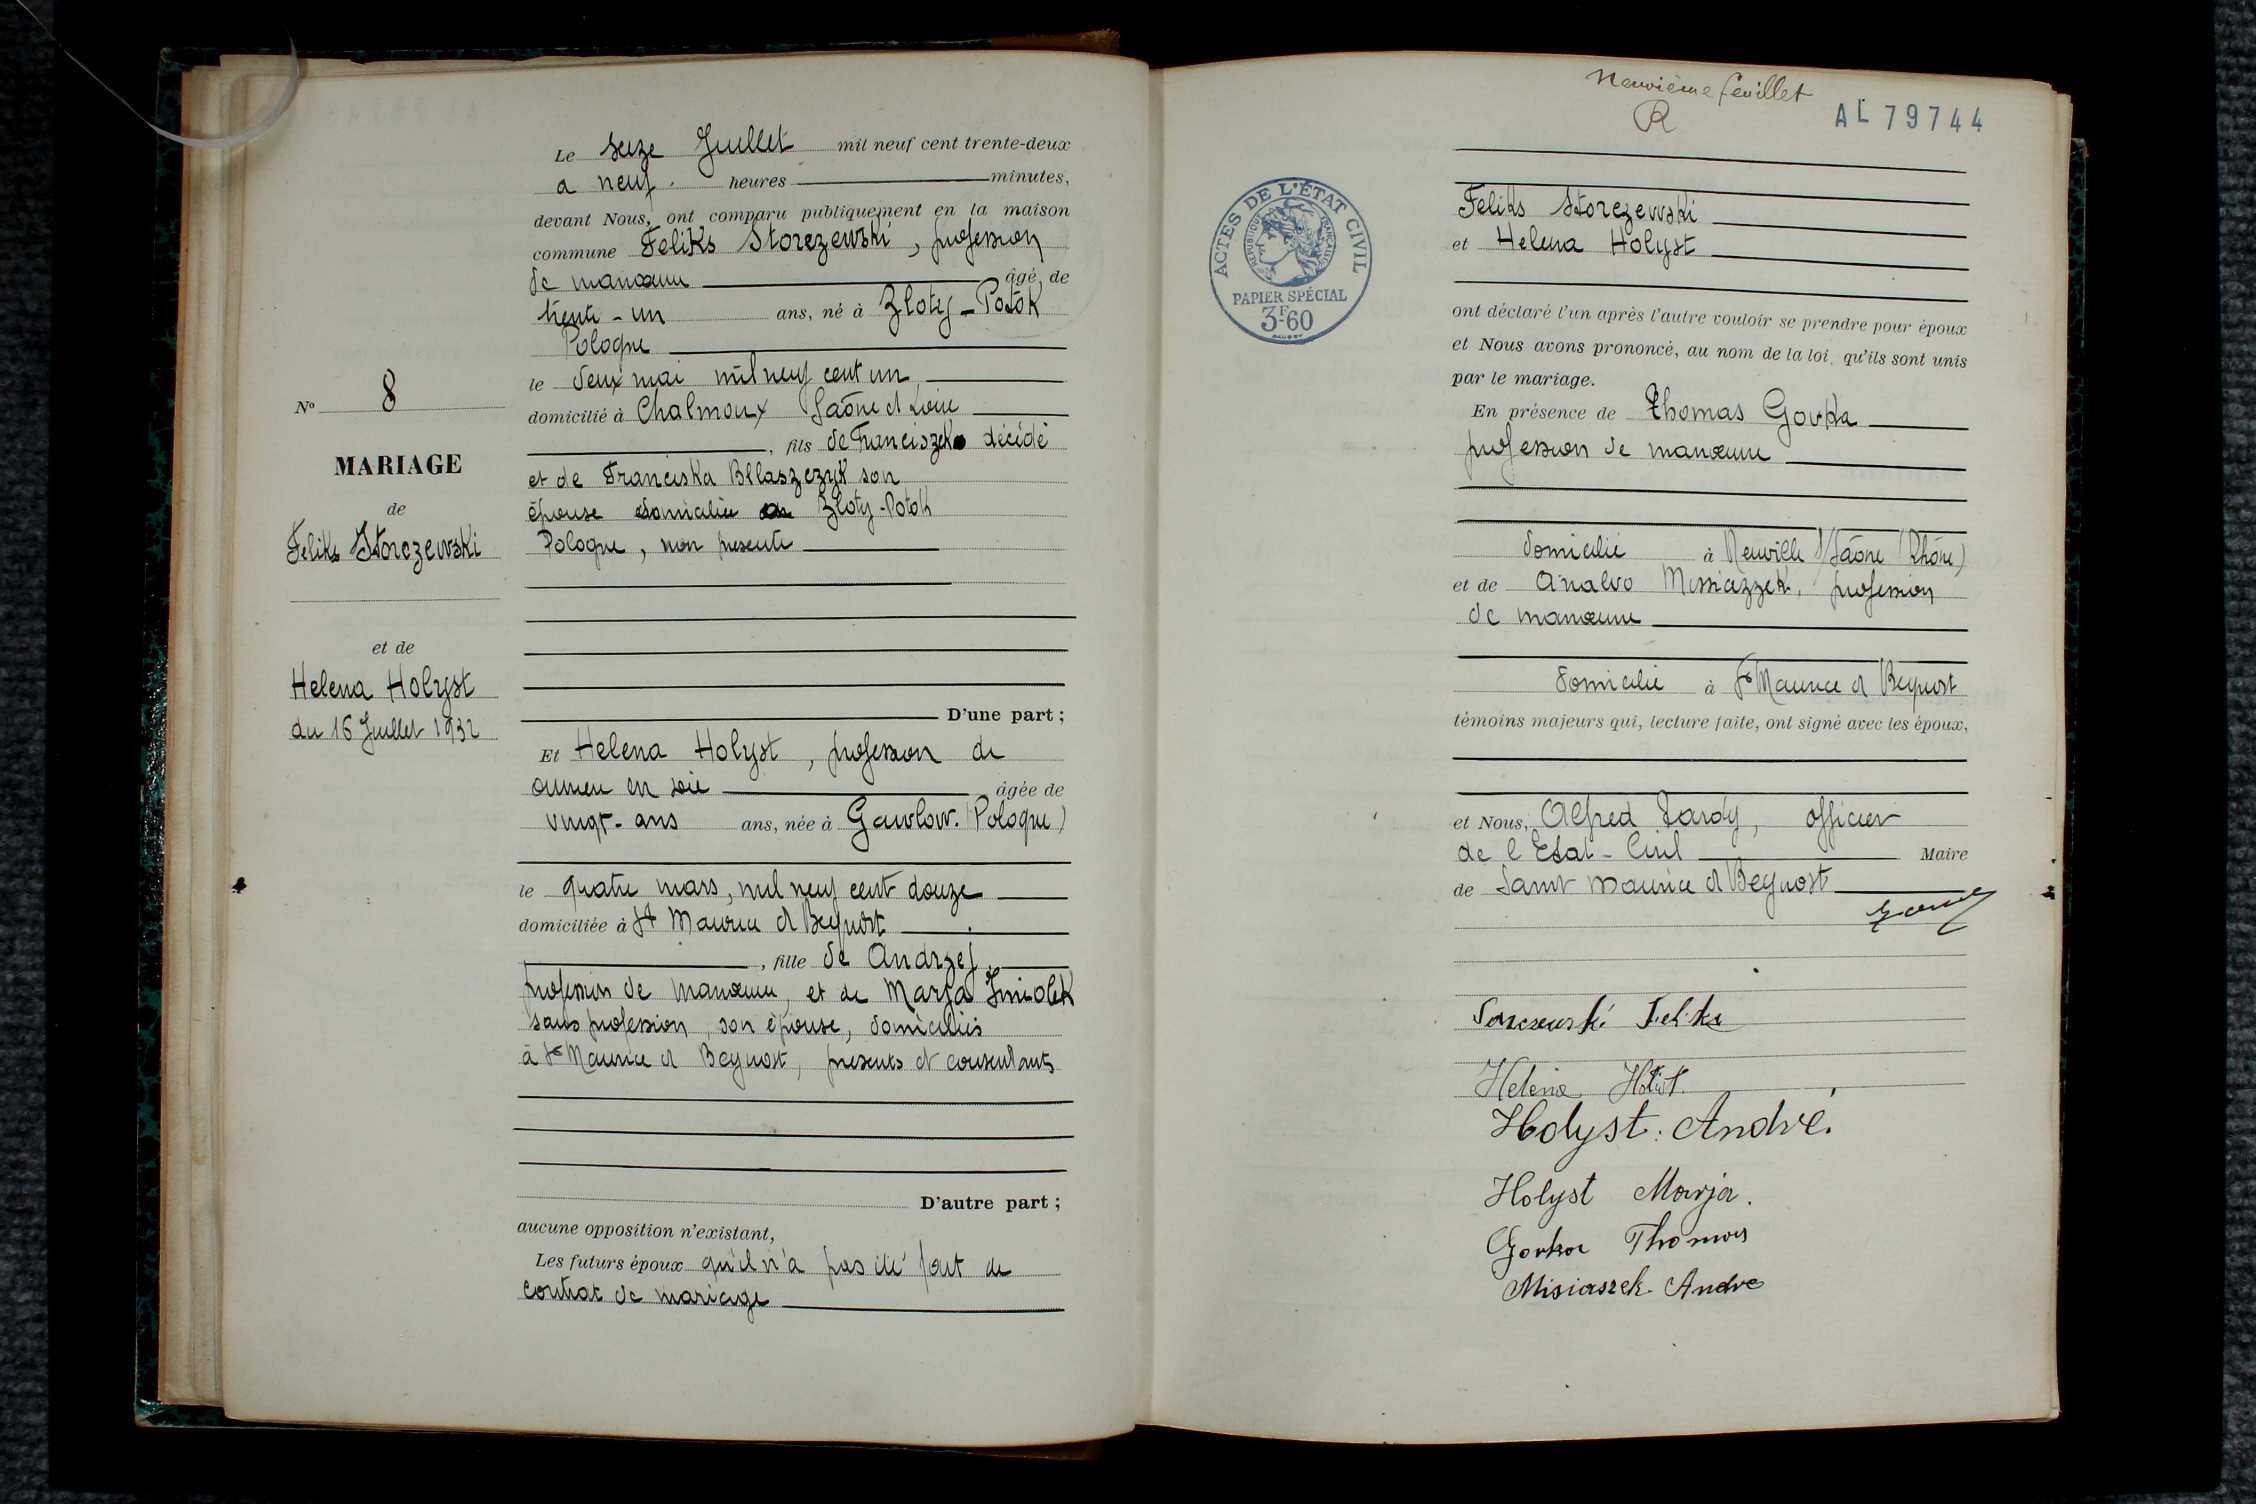 Le seize Juillet mil neuf cent trente-deux
a neuf heures minutes,
devant Nous, ont comparu publiquement en la maison
commune Feliks Storczewski, profession
de manœuvre âgé de
trente-un ans, né à Zloty-Potok
Pologne
le deux mai mil neuf cent un
domicilié à Chalmoux Saône et Loire
, fils de Franciszek décédé
et de Franciska Bllaszczyk son
épouse domiciliée Zloty-Potok
Pologne, non présente
D'une part;
Et Helena Holyst, profession de
ouvrière en soie âgée de
vingt-ans ans, née à Gawlow. (Pologne)
le quatre mars, mil neuf cent douze
domiciliée à St Maurice d Beynost
, fille de Andrzej
profession de manœuvre, et de Marja Imiolek
sans profession, son épouse, domiciliés
à St Maurice d Beynost, présents et consentants
D'autre part;
aucune opposition n'existant,
Les futurs époux qu'il n'a pas été fait de
contrat de mariage
No 8
MARIAGE
de
Feliks Storczewski
et de
Helena Holyst
du 16 Juillet 1932
Neuvième feuillet
AL 79744
ACTES DE L'ÉTAT CIVIL
RÉPUBLIQUE FRANÇAISE
PAPIER SPÉCIAL
3F60
Feliks Storczewski
et Helena Holyst
ont déclaré l'un après l'autre vouloir se prendre pour époux
et Nous avons prononcé, au nom de la loi, qu'ils sont unis
par le mariage.
En présence de Thomas Gorka
profession de manœuvre
domicilié à Neuville s/Saône (Rhône)
et de Missiazzek, profession
de manœuvre
domicilié à St Maurice d Beynost
témoins majeurs qui, lecture faite, ont signé avec les époux,
et Nous, Alfred Tardy, officier
de l'Etat-Civil Maire
de Saint Maurice d Beynost
Storczewski Feliks
Helena Holist.
Holyst. André.
Holyst Marja.
Gorka Thomas
Misiaszek Andre